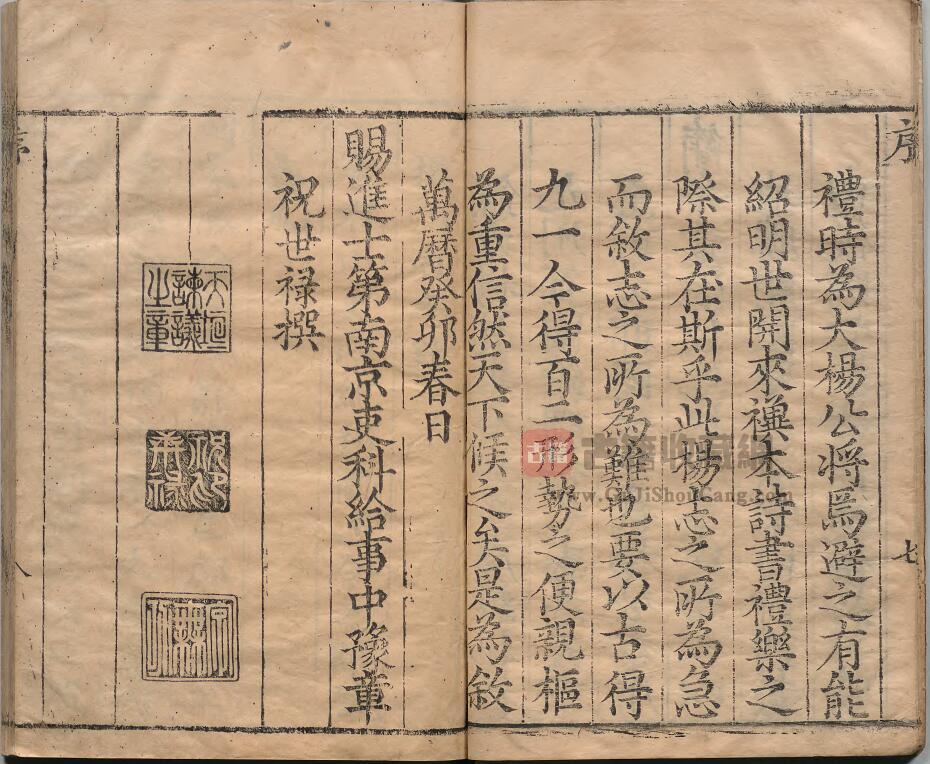 序
七
禮時為大楊公將焉避之有能
紹明世開來禩本詩書禮樂之
際其在斯乎此楊志之所為急
而敘志之所為難也要以古得
九一今得百二形勢之便親樞
為重信然天下候之矣是為敘
萬曆癸卯春日
賜進士第南京吏科給事中豫章
祝世禄撰
諫議
之章
古籍
古籍收藏網
www.GuJiShouCang.com
序
八